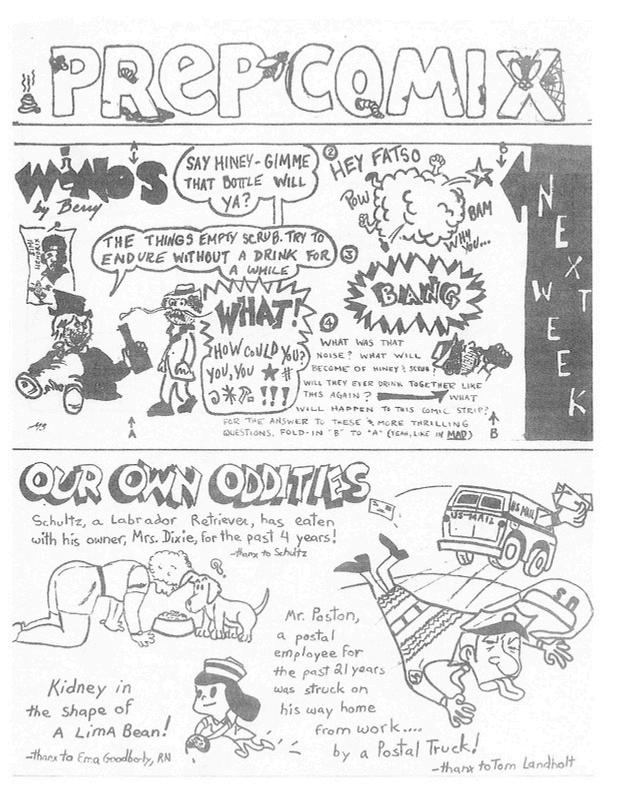 PREP COMIX
WINO'S
by Berry
JIMI HENDRIX
A
SAY HINEY - GIMME
THAT BOTTLE WILL
YA?
THE THINGS EMPTY SCRUB. TRY TO
ENDURE WITHOUT A DRINK FOR
A WHILE
WHAT!
HOW COULD YOU?
YOU, YOU ★#
@*?- !!!
2
HEY FATSO
POW
BAM
WHY
YOU...
3
BANG
4
WHAT WAS THAT
NOISE? WHAT WILL
BECOME OF HINEY & SCRUB?
WILL THEY EVER DRINK TOGETHER LIKE
THIS AGAIN? WHAT
WILL HAPPEN TO THIS COMIC STRIP?
FOR THE ANSWER TO THESE & MORE THRILLING
QUESTIONS, FOLD-IN "B" TO "A" (YEAH, LIKE IN MAD)
A
B
B
NEXT
WEEK
OUR OWN ODDITIES
Schultz, a Labrador Retriever, has eaten
with his owner, Mrs. Dixie, for the past 4 years!
-thanx to Schultz
?
US-MAIL
US MAIL
Mr. Poston,
a postal
employee for
the past 21 years
was struck on
his way home
from work....
by a Postal Truck!
-thanx to Tom Landholt
Kidney in
the shape of
A LIMA Bean!
-thanx to Ema Goodbody, RN